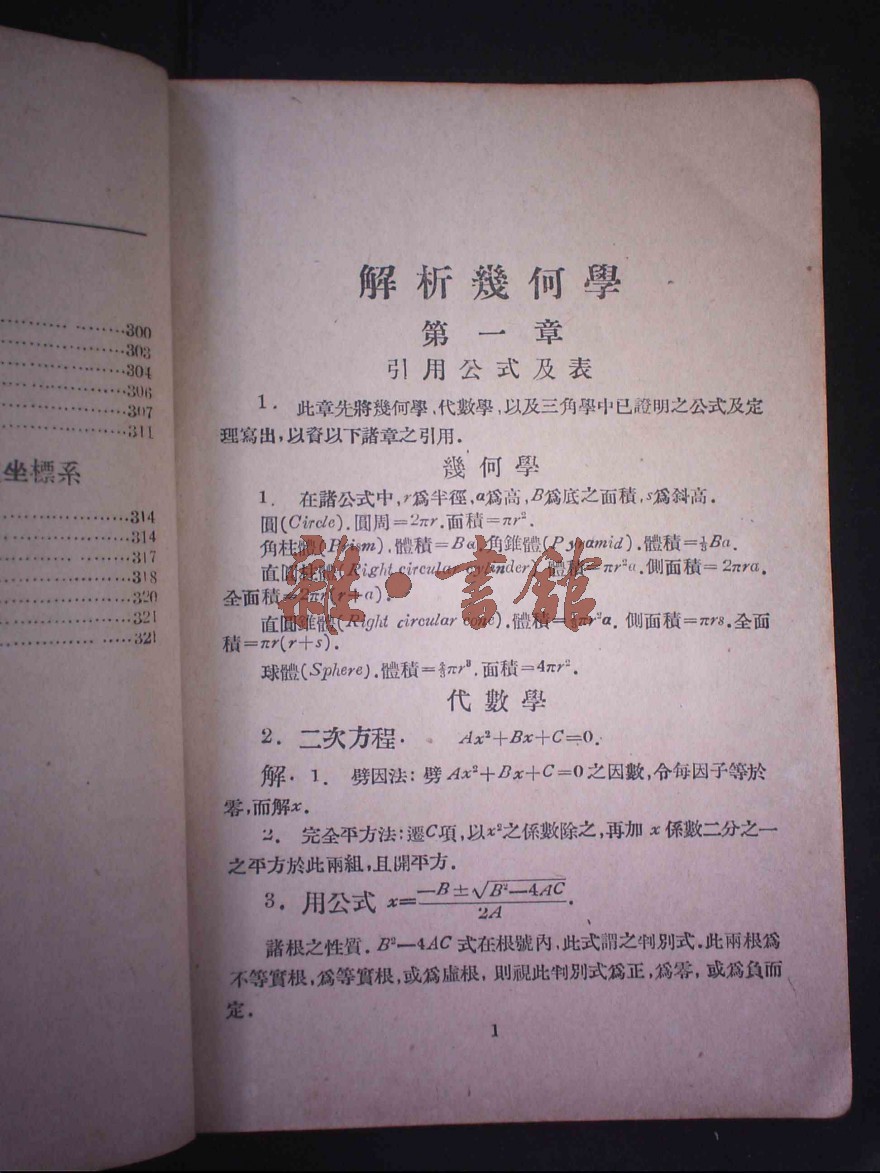 300
303
304
306
307
311
坐標系
314
314
317
318
320
321
321
解析幾何學
第一章
引用公式及表
1. 此章先將幾何學,代數學,以及三角學中已證明之公式及定
理寫出,以資以下諸章之引用.
幾何學
1. 在諸公式中,r爲半徑,a爲高,B爲底之面積,s爲斜高.
圓(Circle).圓周=2πr.面積=πr².
角柱體(Prism).體積=Ba.角錐體(Pyramid).體積=⅓Ba.
直圓柱體(Right circular cylinder).體積=πr²a.側面積=2πra.
全面積=2πr(r+a).
直圓錐體(Right circular cone).體積=⅓πr²a.側面積=πrs.全面
積=πr(r+s).
球體(Sphere).體積=4/3πr³.面積=4πr².
代數學
2. 二次方程. Ax²+Bx+C=0.
解. 1. 劈因法:劈Ax²+Bx+C=0之因數,令每因子等於
零,而解x.
2. 完全平方法:遷C項,以x²之係數除之,再加x係數二分之一
之平方於此兩組,且開平方.
3. 用公式 x=(—B±√(B²—4AC))/2A.
諸根之性質.B²—4AC式在根號內,此式謂之判別式.此兩根爲
不等實根,爲等實根,或爲虛根,則視此判別式爲正,爲零,或爲負而
定.
1
雜·書館